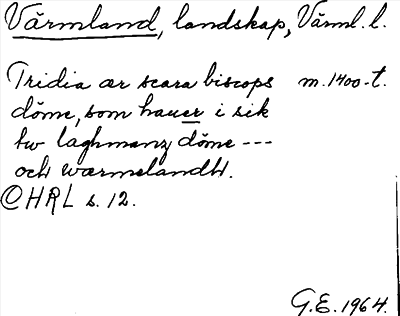 Värmland, landskap, Värml. l.
Tridia ær scara biscops m. 1400-t.
döme, som hauer i sik
tw laghmanz döme ---
och wærmelandh.
© HRL s. 12.
G.E. 1964.